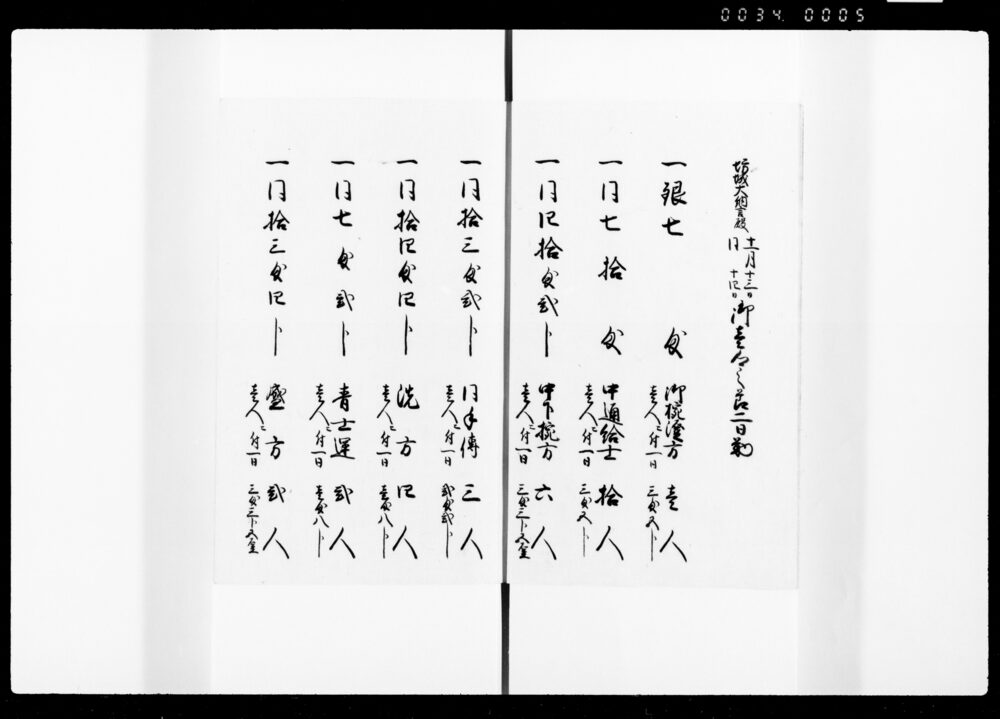 0034 0005
坊城大納言殿
十一月十三日
同 十四日
御 之節二日勤
一銀七匁 御椀 方 壹人
壹人ニ付一日 三匁五分
一同七拾匁 中通給士 拾人
壹人ニ付一日 三匁五分
一同四拾匁弐分 中下椀方 六人
壹人ニ付一日 三匁三分五厘
一同拾三匁弐分 同手傳 三人
壹人ニ付一日 弐匁弐分
一同拾四匁四分 洗方 四人
壹人ニ付一日 壹匁八分
一同七匁弐分 青士運 弐人
壹人ニ付一日 壹匁八分
一同拾三匁四分 盛方 弐人
壹人ニ付一日 三匁三分五厘